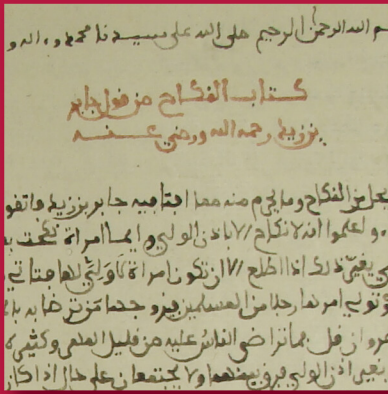 الله الرحمن الرحيم صلى الله على سيدنا محمد واله و
كتاب النكاح من قول جابر
بن زيد رحمه الله ورضي عنه
يحل من النكاح وما يحرم منه مما افتا فيه جابر بن زيد واتفق
واعلموا انه لا نكاح الا باذن الولي وايما امراة نكحت
يغير ذلك اذا اطلع الا ان تكون امراة لا ولي لها فتاتي
وتولي امرها رجلا من المسلمين فيزوجها من ترضا به
قل بما تراضى الناس عليه من قليل المهر وكثيره
بغير اذن الولي فرق بينهما ولا يجتمعان على حال اذا كان